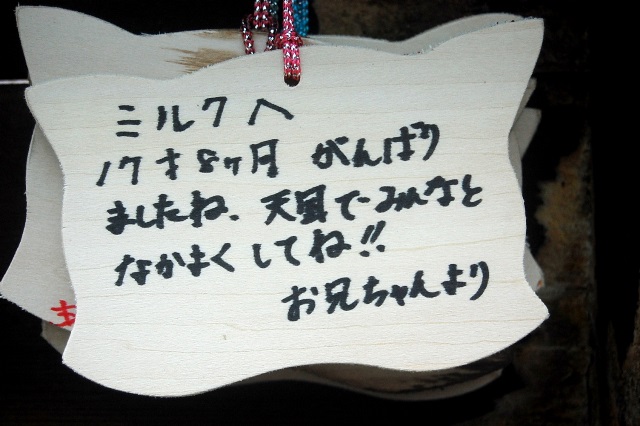 ミルクへ
17才8ヶ月 がんばり
ましたね、天国でみんなと
なかよくしてね!!
お兄ちゃんより